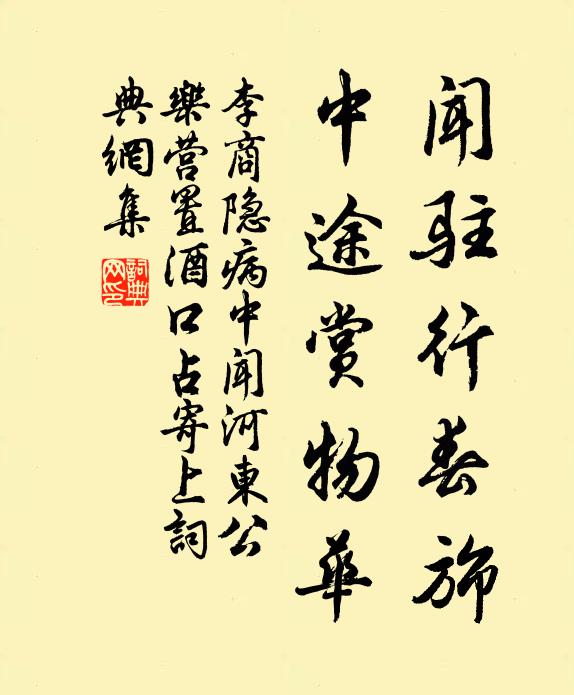 闻驻行春旆
中途赏物华
李商隐病中闻河東公
樂营置酒口占寄上詞
典網集
詞典
网印